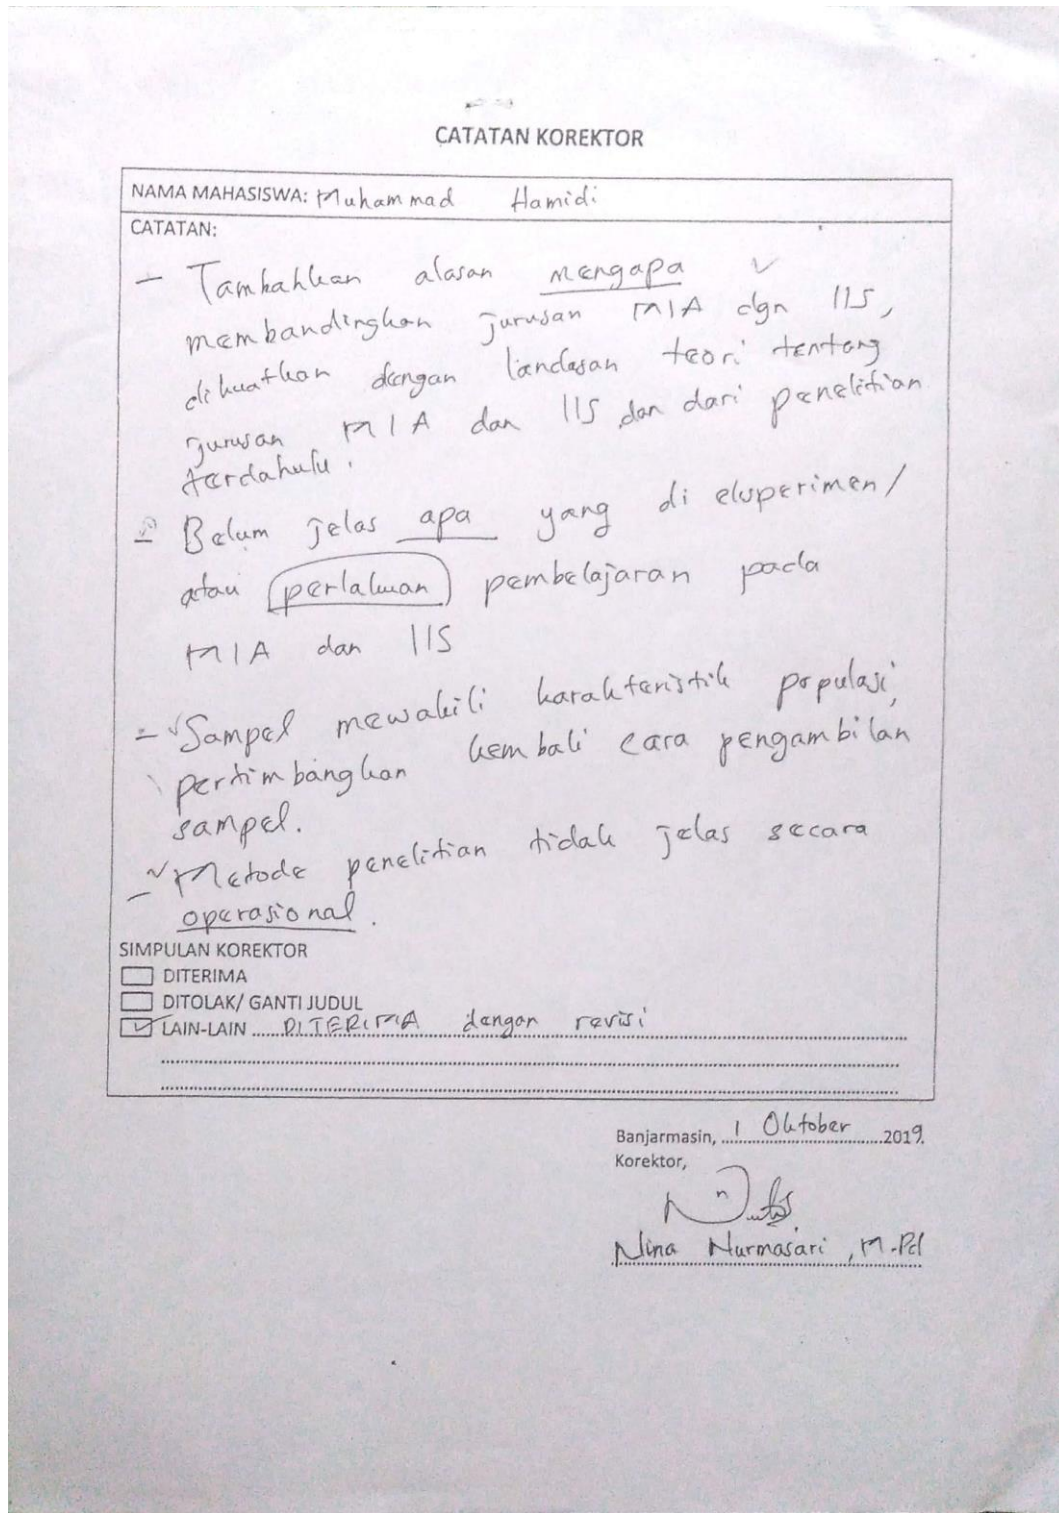 CATATAN KOREKTOR
NAMA MAHASISWA: Muhammad Hamidi
CATATAN:
- Tambahkan alasan mengapa
membandingkan jurusan MIA dgn IIS,
dikuatkan dengan landasan teori tentang
jurusan MIA dan IIS dan dari penelitian
terdahulu.
- Belum jelas apa yang di eksperimen/
atau perlakuan pembelajaran pada
MIA dan IIS
- Sampel mewakili karakteristik populasi,
pertimbangkan kembali cara pengambilan
sampel.
- Metode penelitian tidak jelas secara
operasional.
SIMPULAN KOREKTOR
DITERIMA
DITOLAK/ GANTI JUDUL
LAIN-LAIN ..... DITERIMA dengan revisi
Banjarmasin, 1 Oktober 2019.
Korektor,
Nina Nurmasari, M.Pd